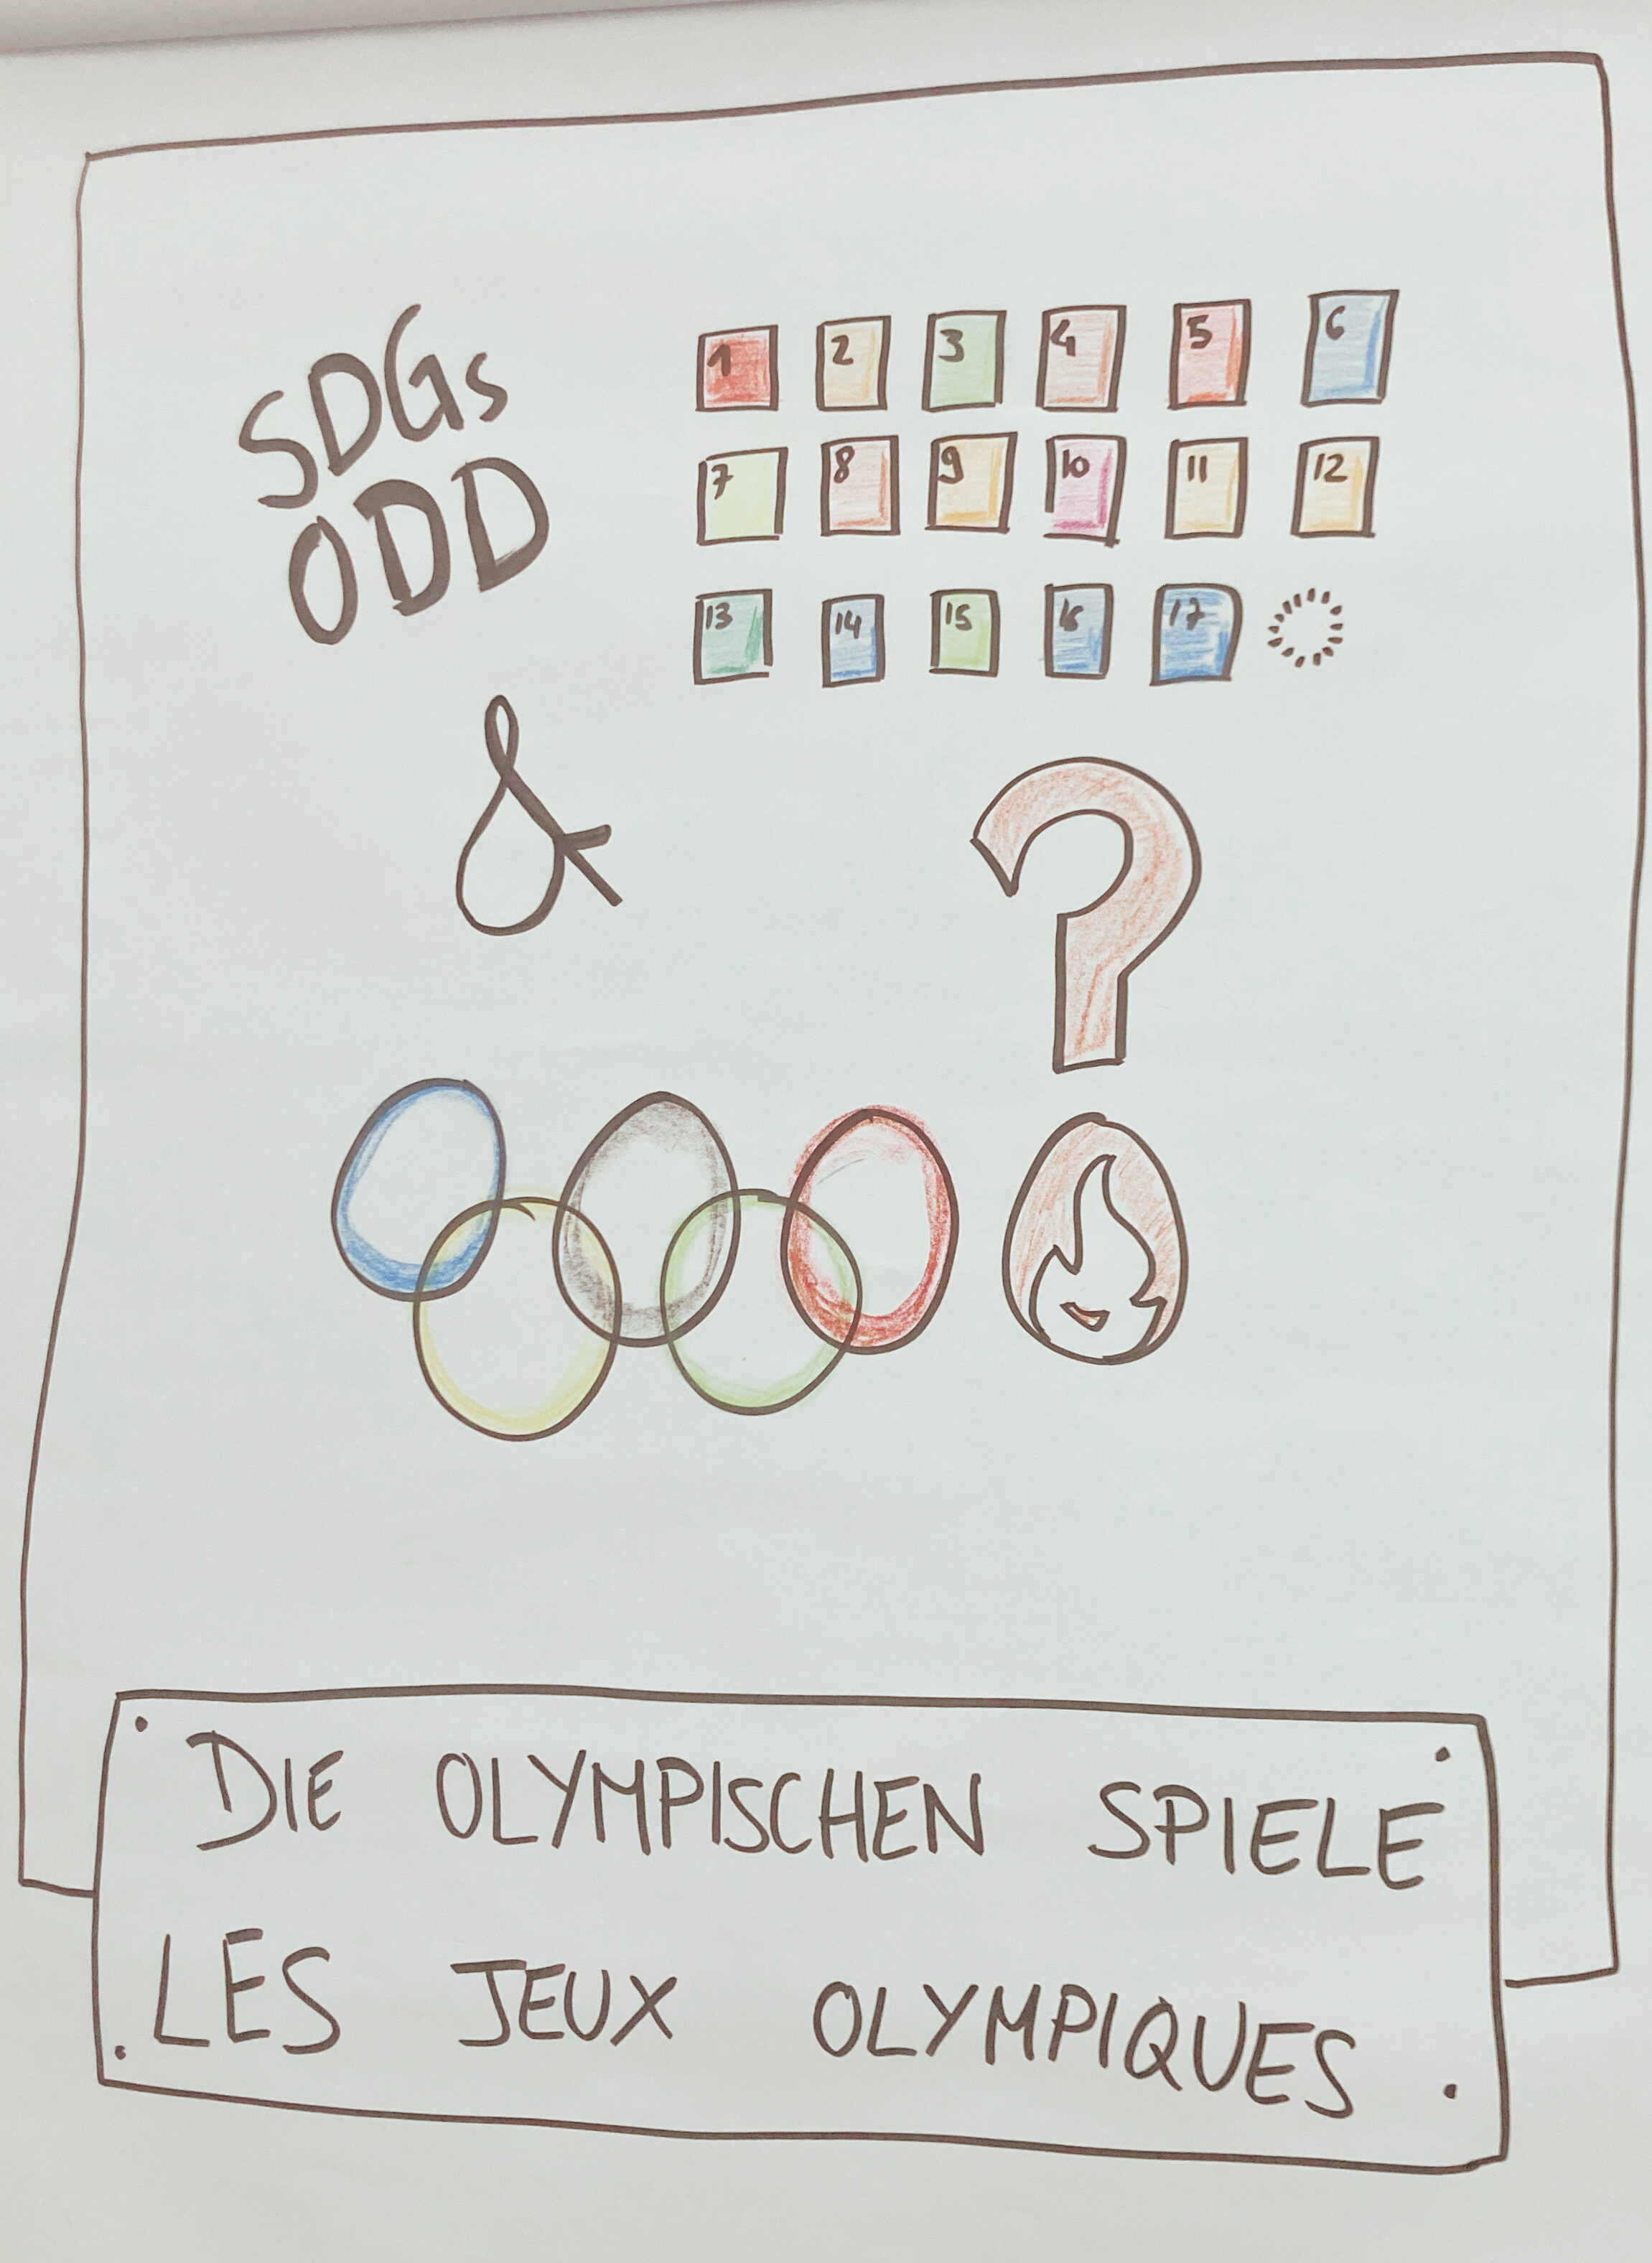 SDGs
ODD
1 2 3 4 5 6
7 8 9 10 11 12
13 14 15 16 17
&
?
DIE OLYMPISCHEN SPIELE
LES JEUX OLYMPIQUES